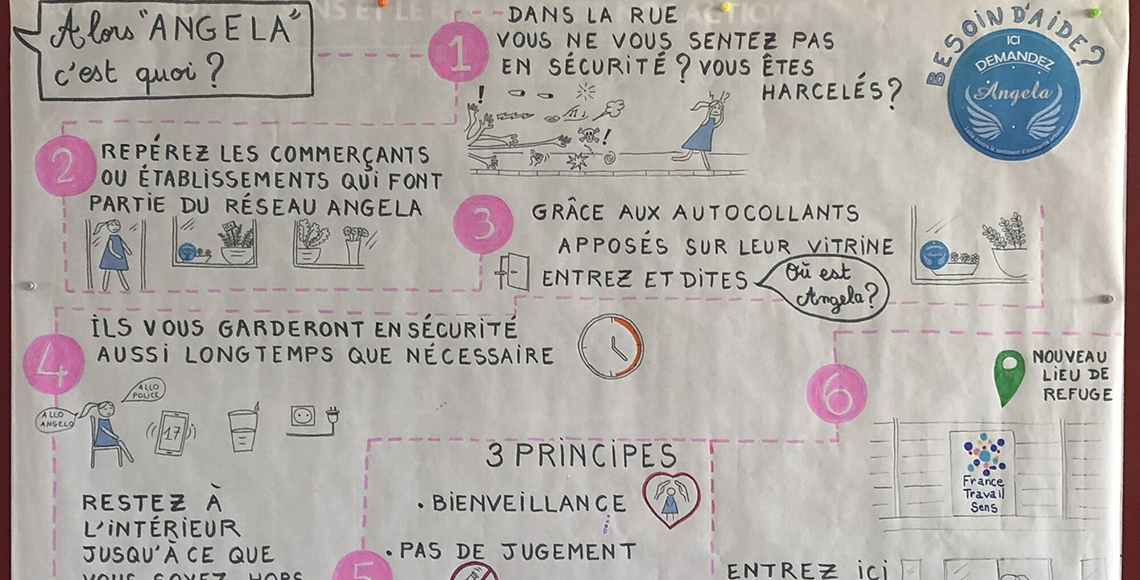 Alors "ANGELA"
c'est quoi ?
1
DANS LA RUE
VOUS NE VOUS SENTEZ PAS
EN SÉCURITÉ ? VOUS ÊTES
HARCELÉS ?
!
!
BESOIN D'AIDE ?
ICI
DEMANDEZ
Angela
2
REPÉREZ LES COMMERÇANTS
OU ÉTABLISSEMENTS QUI FONT
PARTIE DU RÉSEAU ANGELA
3
GRÂCE AUX AUTOCOLLANTS
APPOSÉS SUR LEUR VITRINE
ENTREZ ET DITES
Où est
Angela ?
4
ILS VOUS GARDERONT EN SÉCURITÉ
AUSSI LONGTEMPS QUE NÉCESSAIRE
ALLO
POLICE
ALLO
ANGELO
17
6
NOUVEAU
LIEU DE
REFUGE
France
Travail
Sens
3 PRINCIPES
• BIENVEILLANCE
• PAS DE JUGEMENT
RESTEZ À
L'INTÉRIEUR
JUSQU'À CE QUE
VOUS SOYEZ HORS
5
ENTREZ ICI